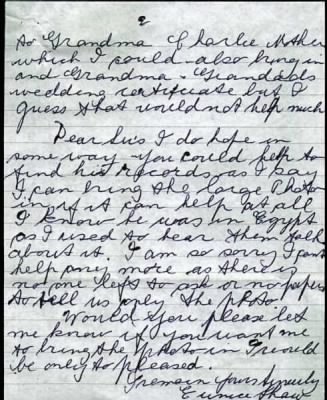 2
to Grandma & Charlie Mother
which I could also bring in
and Grandma & Grandads
wedding certificate but I
guess that would not help much
Dear Sirs I do hope in
some way you could help to
find his records as I say
I can bring the large Photo
in if it can help at all
I know he was in Egypt
as I used to hear them talk
about it. I am so sorry I cant
help any more as there is
not one left to ask or no papers
to tell us only the photo
Would you please let
me know if you want me
to bring the photo in I would
be only to pleased.
I remain yours sincerely
Eunice Shaw